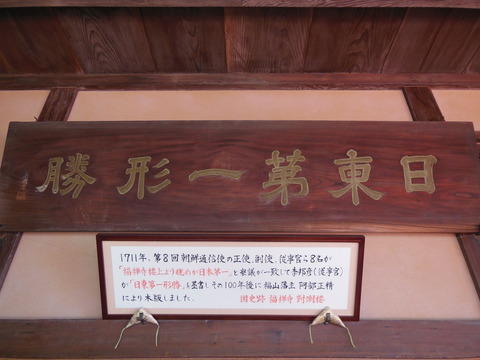 日東第一形勝
1711年、第8回朝鮮通信使の正使、副使、従事官ら8名が
「福禅寺楼上より眺めが日本第一」と衆議が一致して李邦彦(従事官)
が「日東第一形勝」と墨書し、その100年後に福山藩主 阿部正精
により木版しました。 国史跡 福禅寺 対潮楼